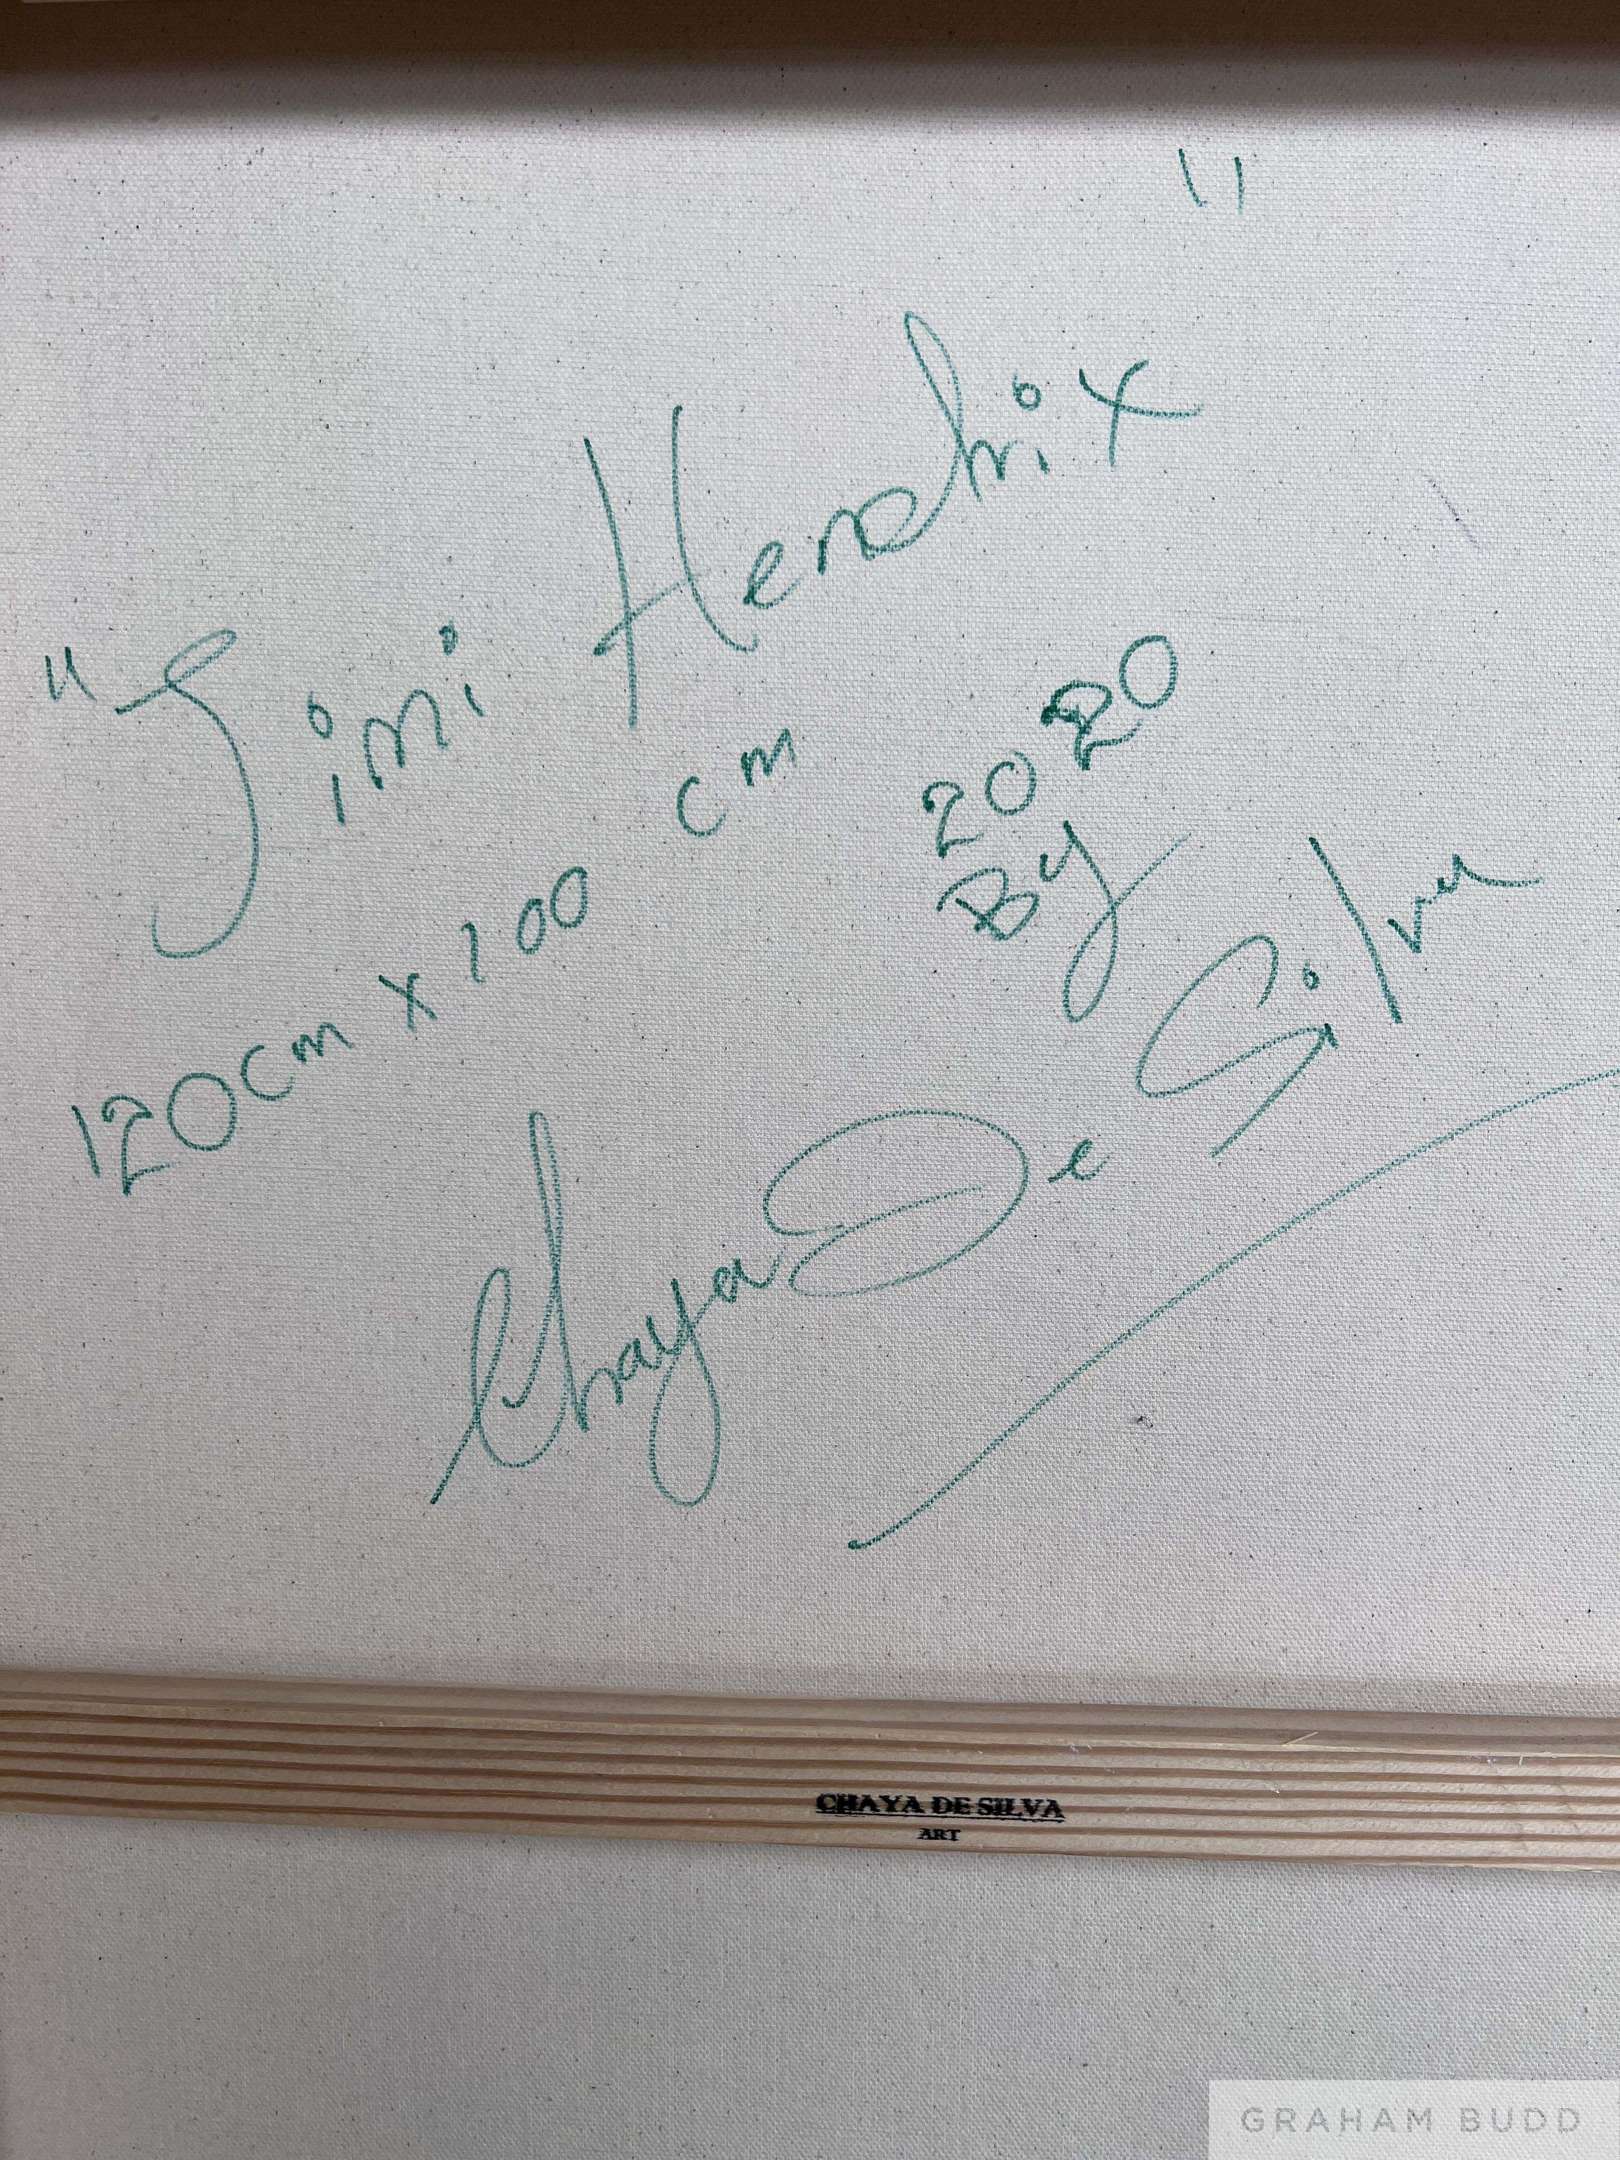 "Jimi Hendrix"
120cm x 100 cm
2020
By
Chaya De Silva
CHAYA DE SILVA
ART
GRAHAM BUDD